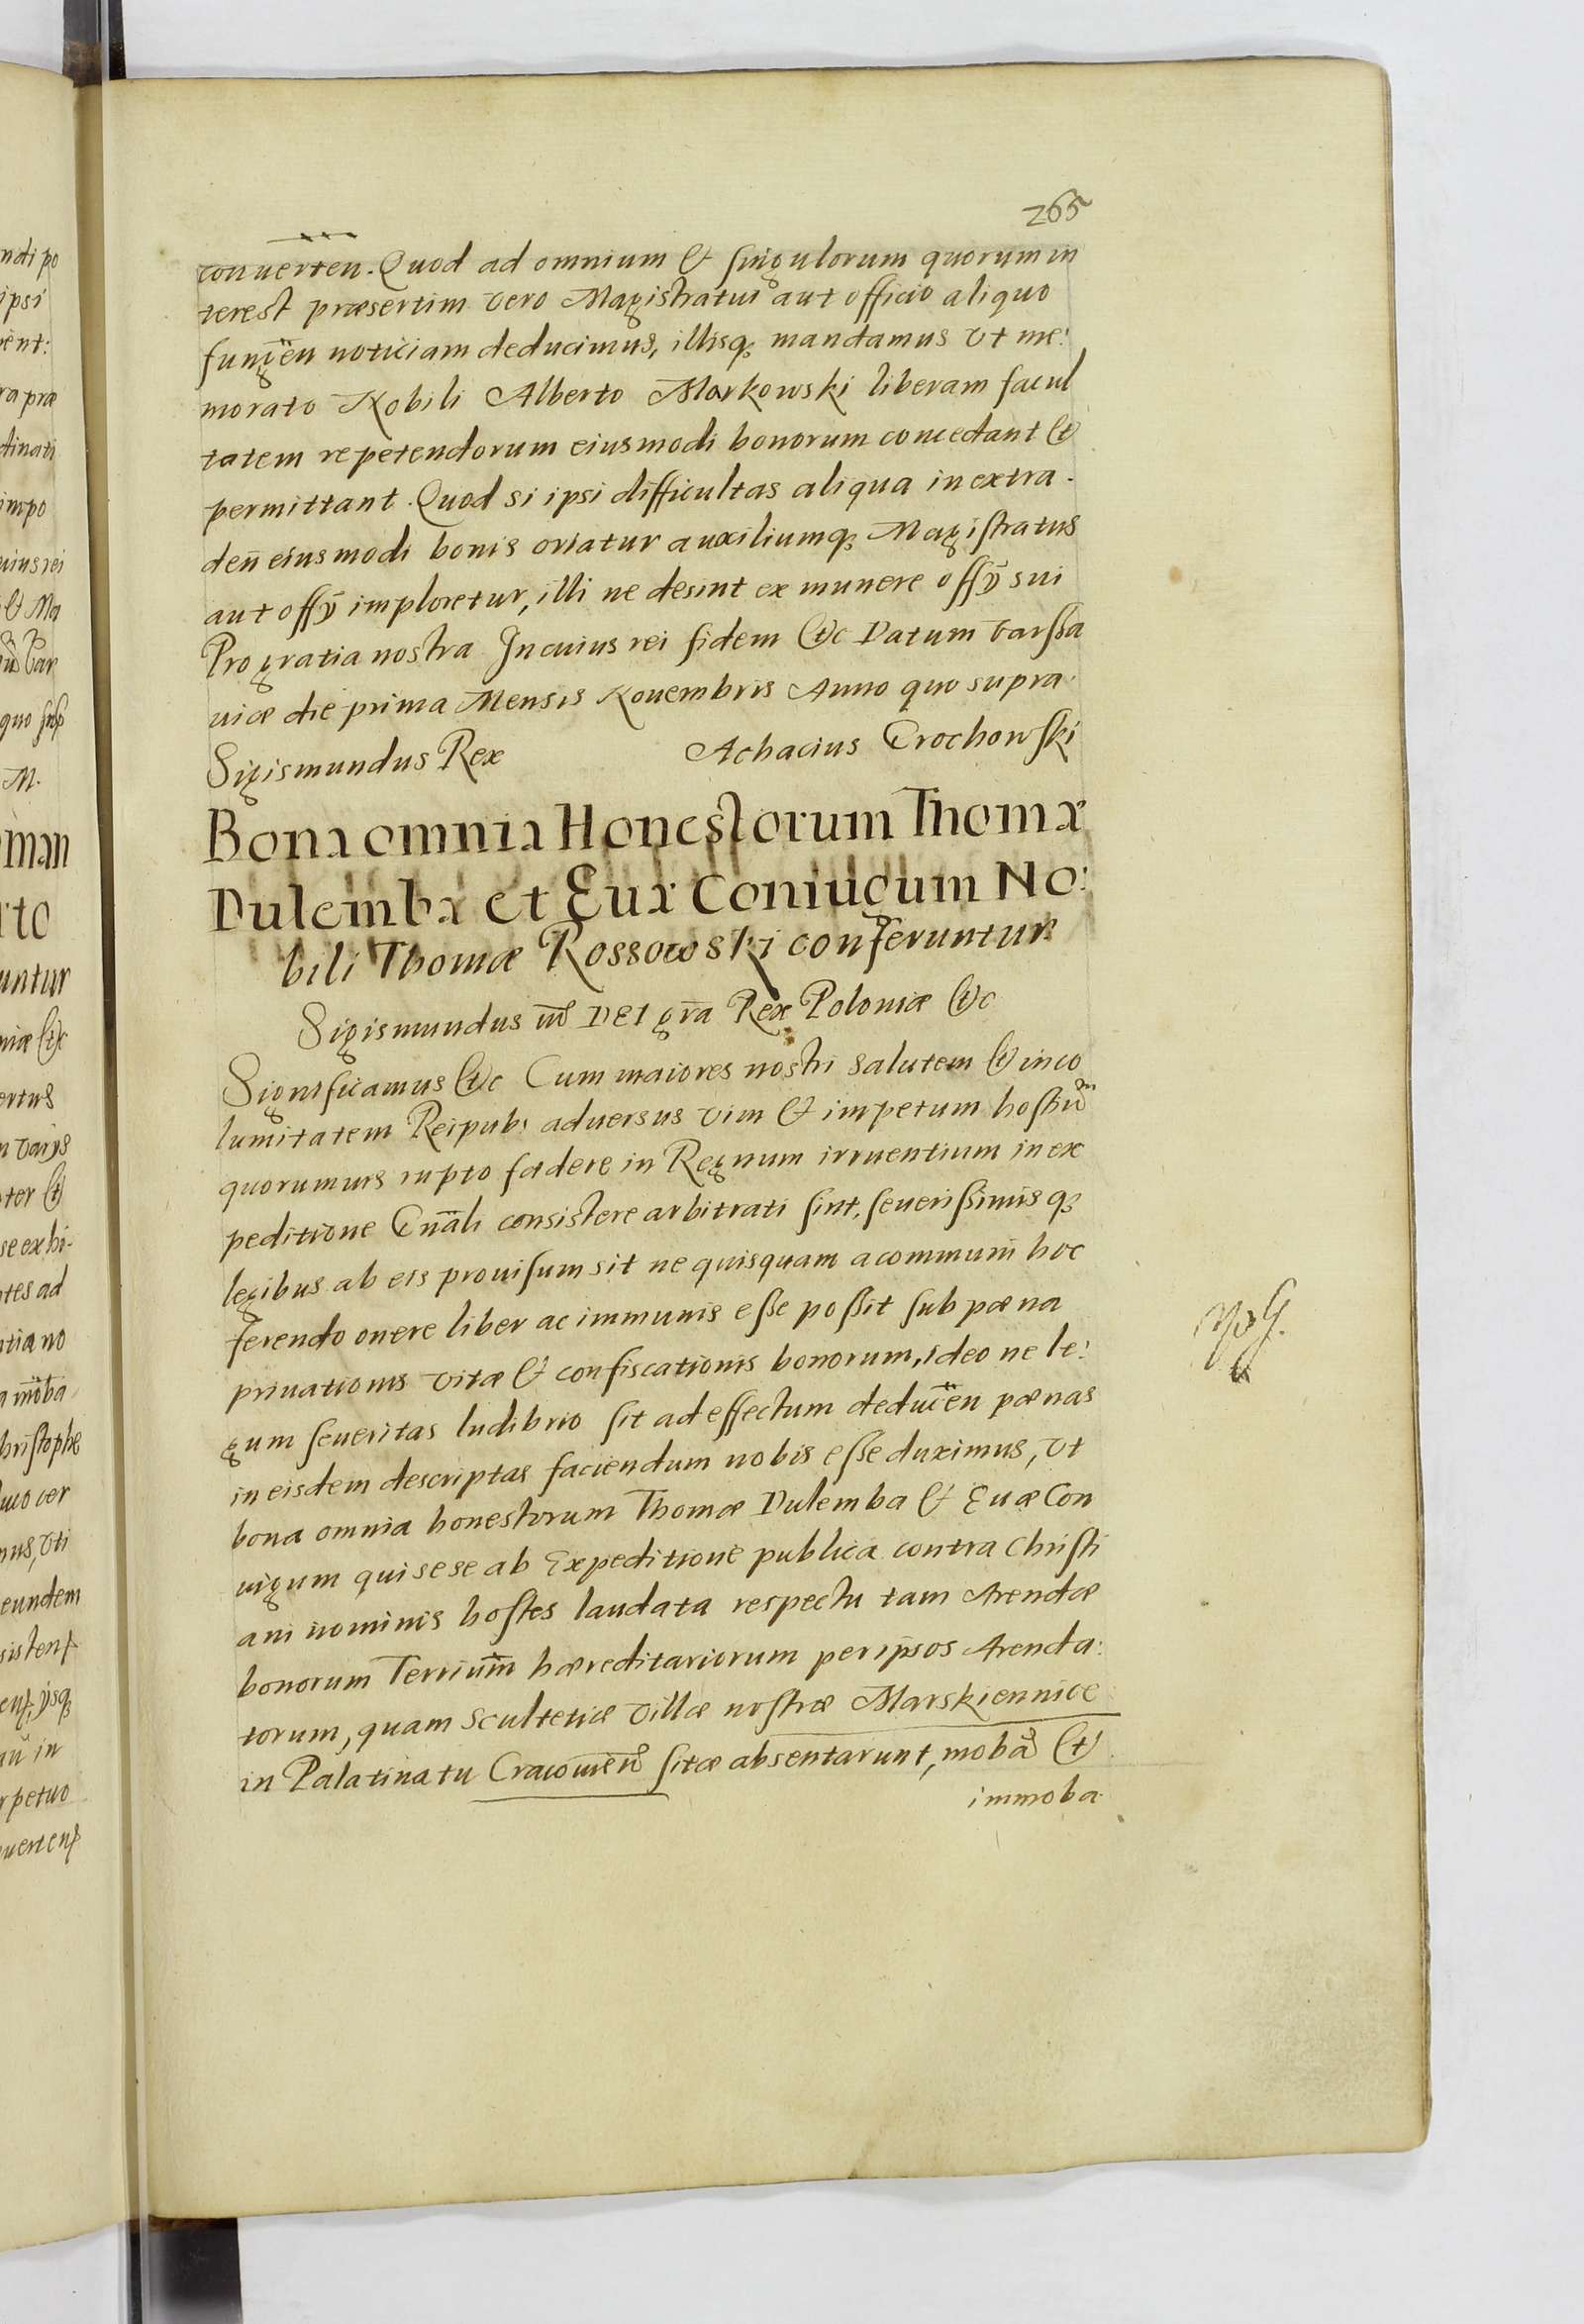 265
conuerten. Quod ad omnium & singulorum quorum in
terest præsertim vero Magistratui aut officio aliquo
fungen noticiam deducimus, illisq₃ mandamus vt me:
morato Nobili Alberto Markowski liberam facul
tatem repetendorum eiusmodi bonorum concedant &
permittant. Quod si ipsi difficultas aliqua in extra.
den̄ eiusmodi bonis oriatur auxiliumq₃ Magistratus
aut offÿ imploretur, illi ne desint ex munere offÿ sui
Pro gratia nostra In cuius rei fidem &c Datum Varssa
uiæ die prima Mensis Nouembris Anno quo supra.
Sigismundus Rex Achacius Grochowski
Bona omnia Honestorum Thomæ
Dulemba et Euæ Coniugum No:
bili Thomæ Rossowski conferuntur
Sigismundus DEI gr̄a Rex Poloniæ &c
Significamus &c Cum maiores nostri salutem & inco
lumitatem Reipub: aduersus vim & impetum hostiū
quorumuis rupto fædere in Regnum irruentium in ex
peditione Gn̄ali consistere arbitrati sint, seuerissimis q₃
legibus ab eis prouisum sit ne quisquam a communi hoc
ferendo onere liber ac immunis esse possit sub pæna
priuationis vitæ & confiscationis bonorum, ideo ne le:
gum seueritas ludibrio sit ad effectum deducen pænas
in eisdem descriptas faciendum nobis esse duximus, vt
bona omnia honestorum Thomæ Dulemba & Euæ Con
iugum qui sese ab Expeditione publica contra Christi
ani nominis hostes laudata respectu tam Arendæ
bonorum Terrium̄ hæreditariorum per ipsos Arenda:
torum, quam Scultetiæ villæ nostræ Marskiennice
in Palatinatu Cracouien̄ sitæ absentarunt, moba &
immoba